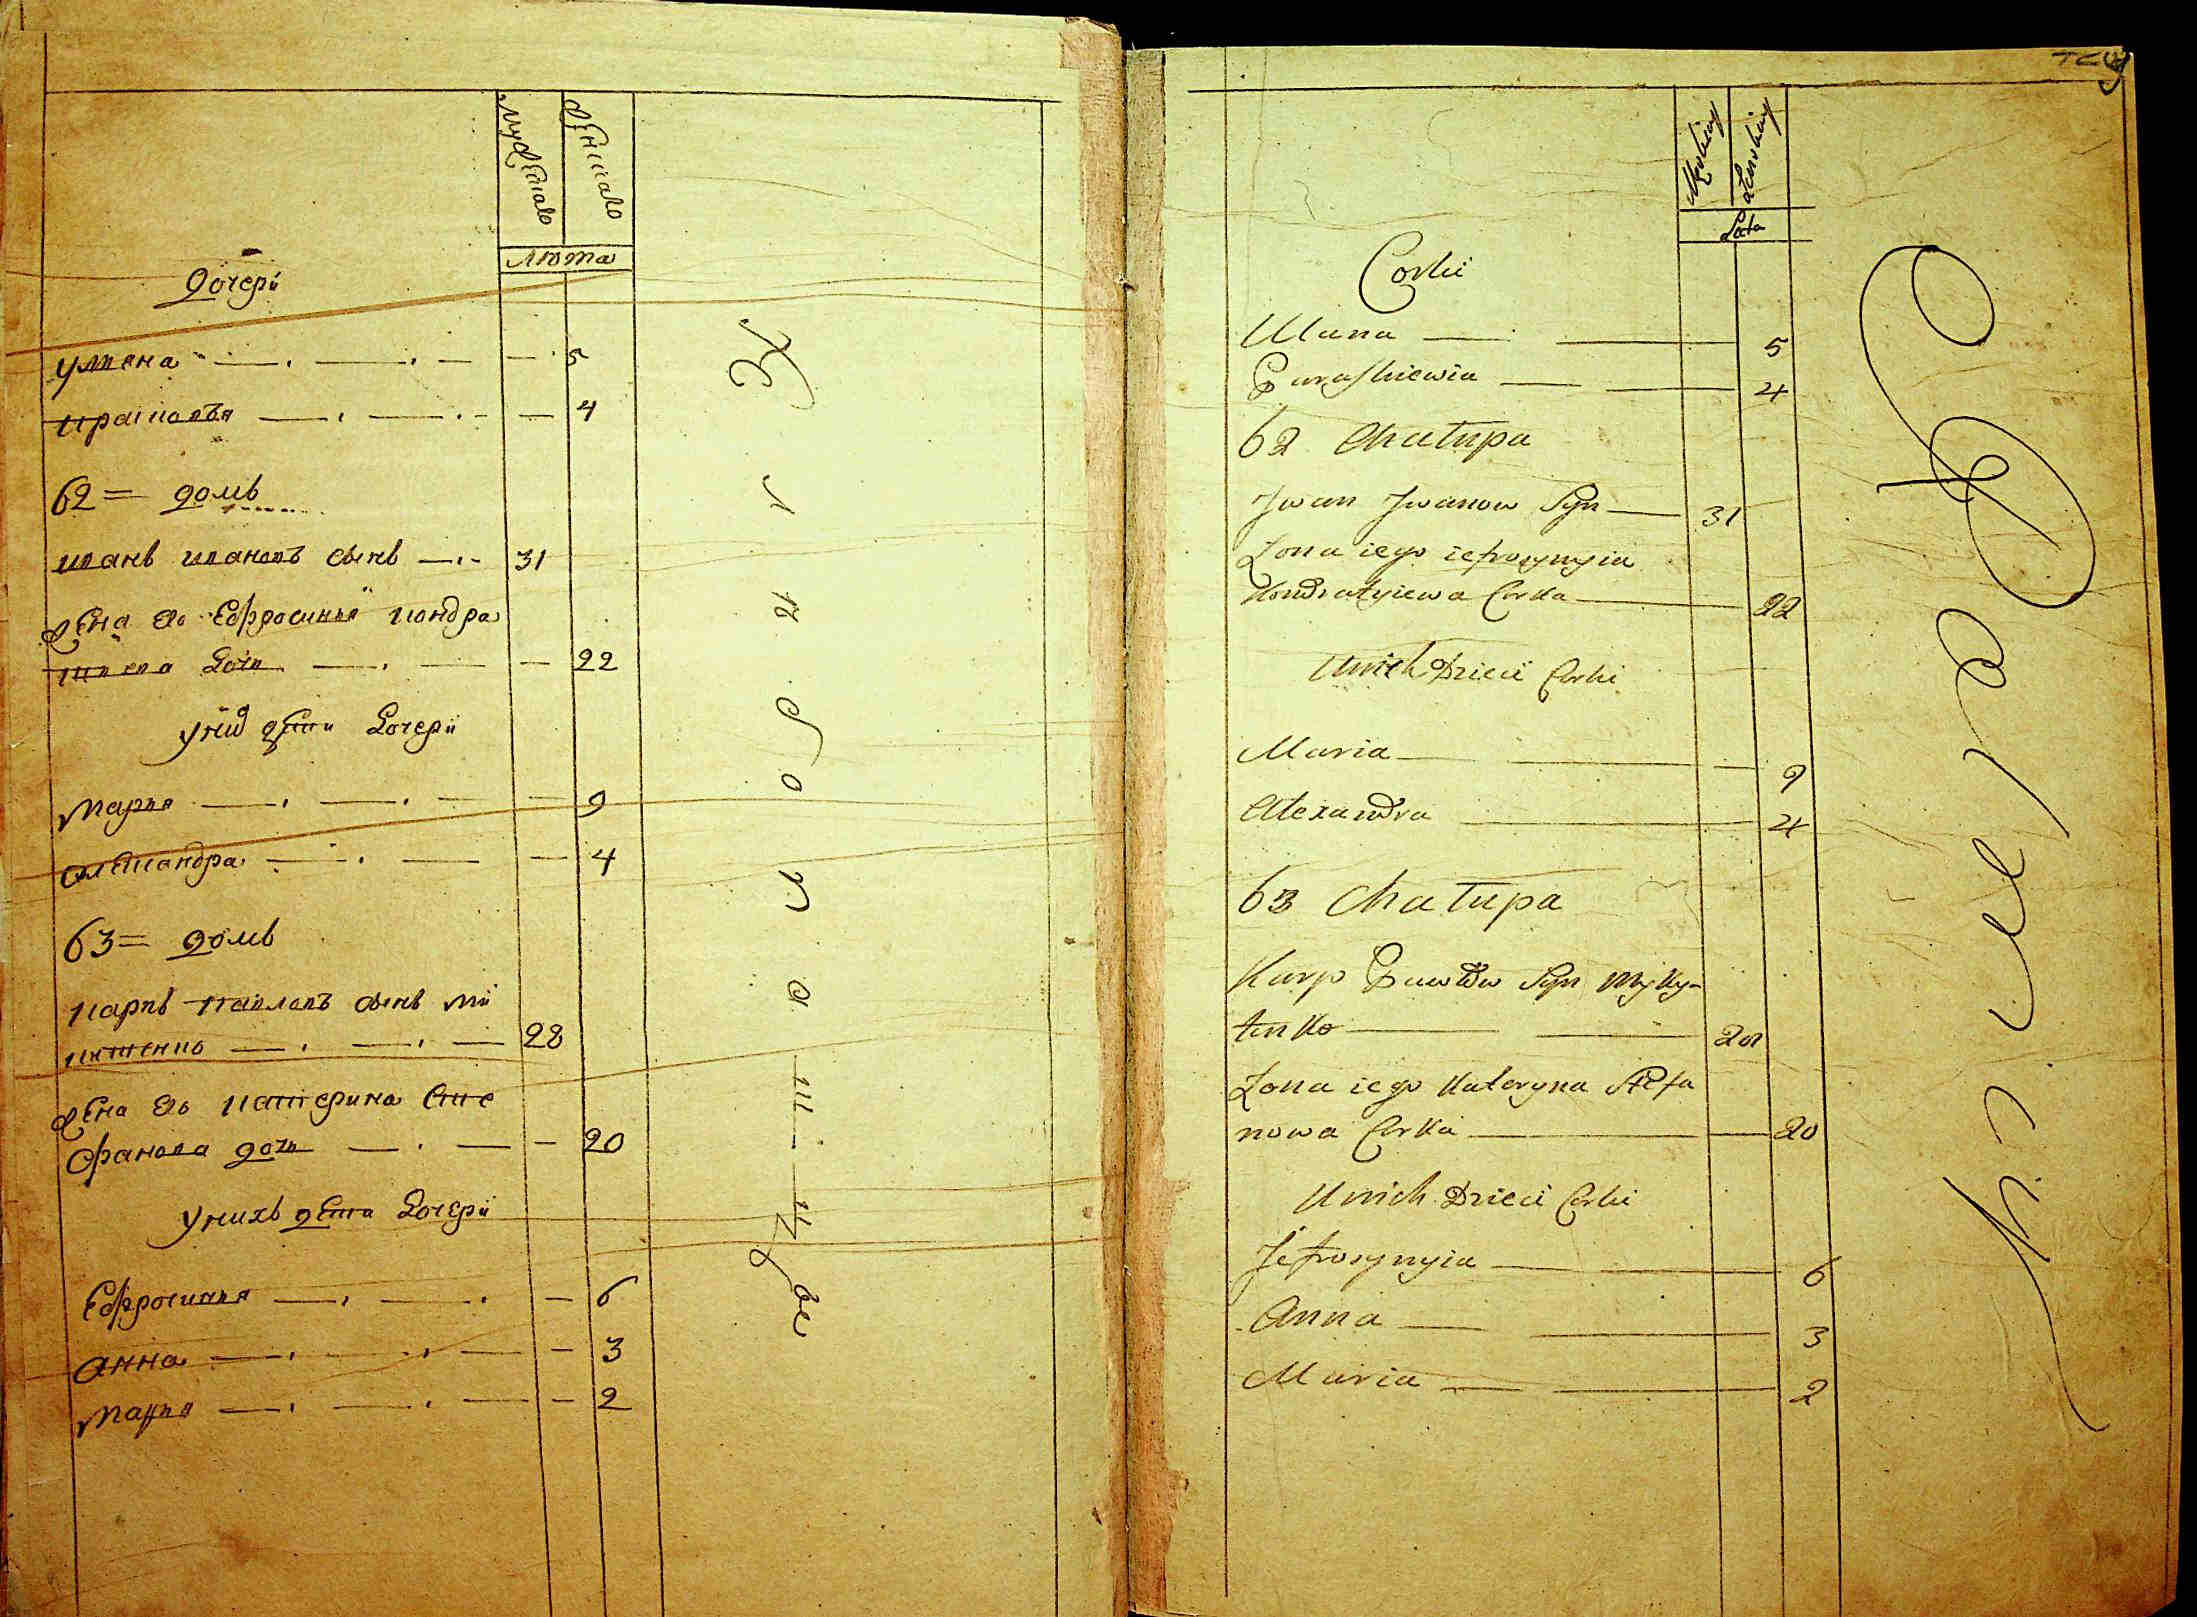 мужеска
женска
лѣта
дочери
уляна — 5
прасковья — 4
62 = домъ
иванъ ивановъ сынъ — 31
жена его Ефросинья кондра
тьева дочь — 22
у них дети дочери
марья — 9
александра — 4
63 = домъ
карпъ павловъ сынъ ми
китенко — 28
жена его катерина сте
фанова дочь — 20
у нихъ дети дочери
Ефросинья — 6
анна — 3
марья — 2
Męskiey
Żenskiey
Lata
Corki
Ulana — 5
Paraskiewia — 4
62 Chałupa
Jwan Jwanow Syn — 31
Zona iego iefrosynyia
Kondratyiewa Corka — 22
Unich Dzieci Corki
Maria — 9
Alexandra — 4
63 Chałupa
Karp Pawłow Syn Myky-
tenko — 28
Zona iego Kateryna Stefa
nowa Corka — 20
Unich Dzieci Corki
Jefrosynyia — 6
Anna — 3
Maria — 2